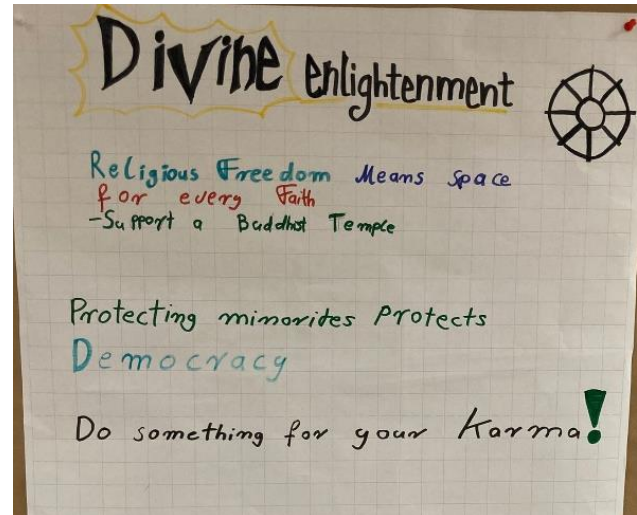 Divine enlightenment
Religious Freedom Means space
for every Faith
-Support a Buddhist Temple
Protecting minorites Protects
Democracy
Do something for your Karma!